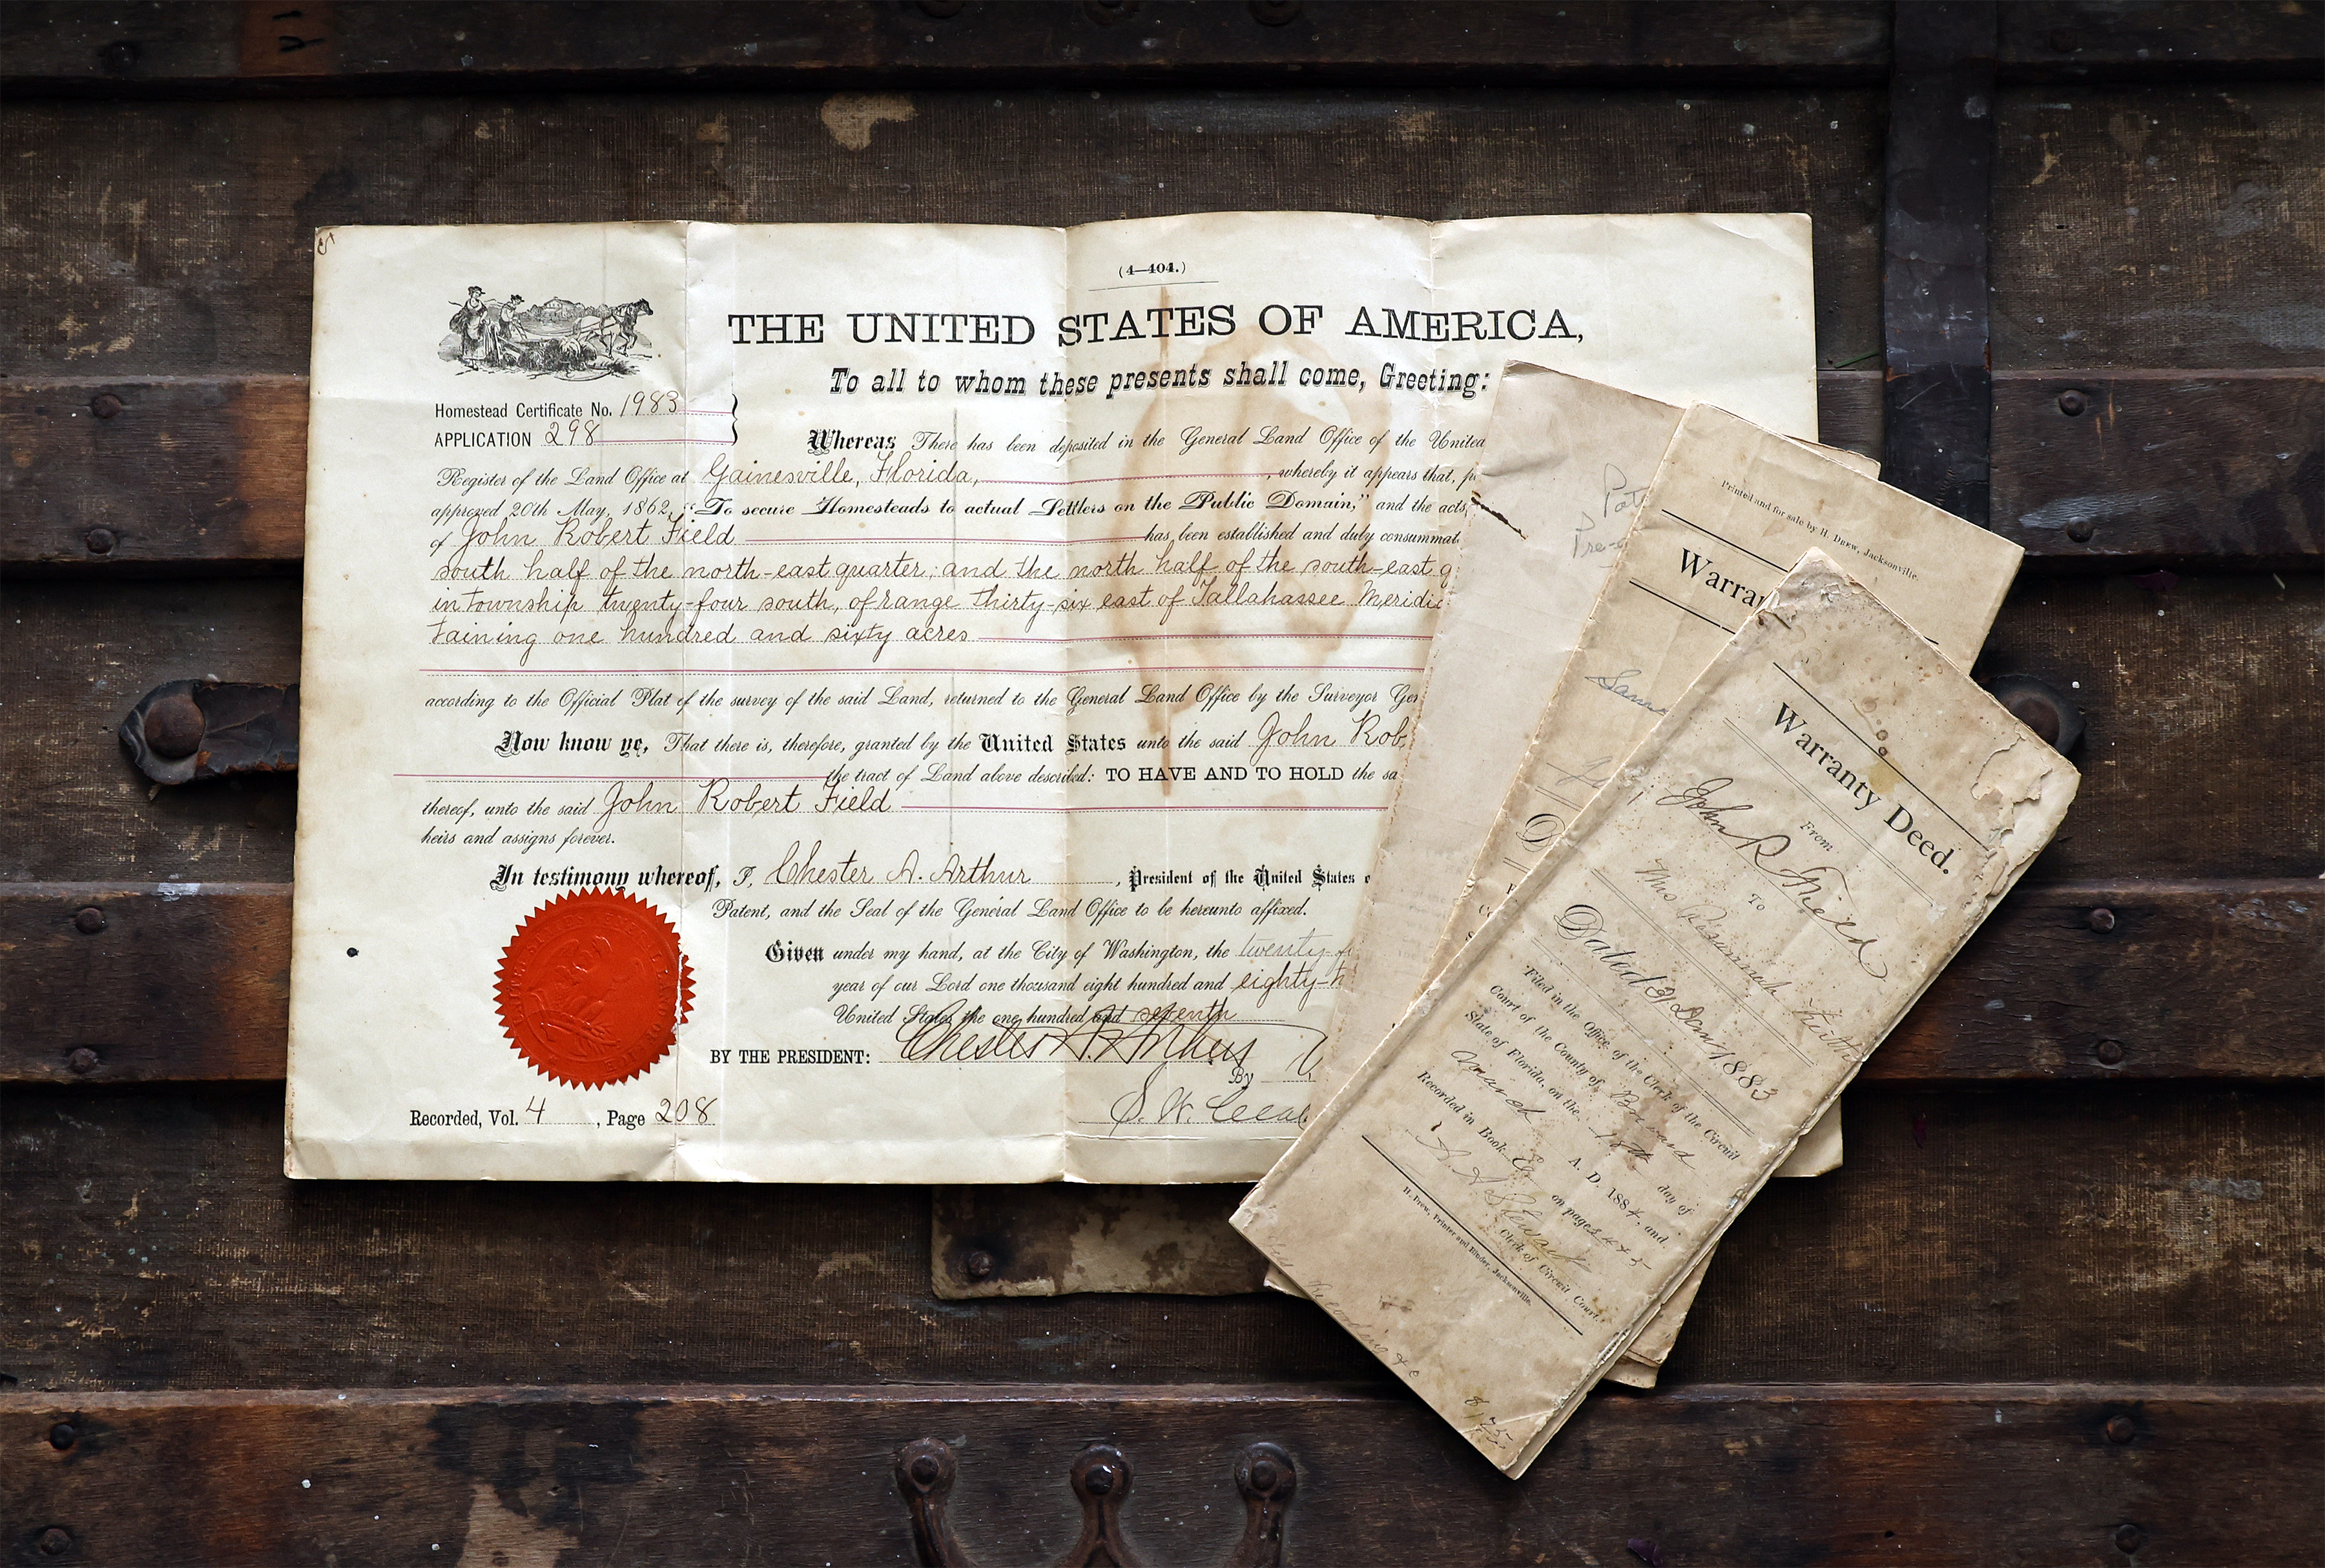 (4—404.)
THE UNITED STATES OF AMERICA,
To all to whom these presents shall come, Greeting:
Homestead Certificate No. 1983
APPLICATION 298
Whereas There has been deposited in the General Land Office of the United
Register of the Land Office at Gainesville, Florida, , whereby it appears that,
approved 20th May, 1862, "To secure Homesteads to actual Settlers on the Public Domain," and the acts
of John Robert Field has been established and duly consummat
south half of the north-east quarter, and the north half of the south-east q
in township twenty-four south, of range thirty-six east of Tallahassee Meridi
taining one hundred and sixty acres
according to the Official Plat of the survey of the said Land, returned to the General Land Office by the Surveyor Gen
Now know ye, That there is, therefore, granted by the United States unto the said John Rob
the tract of Land above described: TO HAVE AND TO HOLD the sa
thereof, unto the said John Robert Field
heirs and assigns forever.
In testimony whereof, I, Chester A. Arthur , President of the United States
Patent, and the Seal of the General Land Office to be hereunto affixed.
Given under my hand, at the City of Washington, the twenty-
year of our Lord one thousand eight hundred and eighty-t
United States the one hundred and seventh
BY THE PRESIDENT: Chester A. Arthur
By
S. W.
Recorded, Vol. 4 , Page 208
Pat
Pre-
Printed and for sale by H. DREW, Jacksonville.
Warra
D
Warranty Deed.
John R Field
From
To
Mrs
Dated 31 Dec 1883
Filed in the Office of the Clerk of the Circuit
Court of the County of Brevard
State of Florida, on the day of
March A. D. 1884, and
Recorded in Book on pages
Clerk of Circuit Court.
H. Drew, Printer and Binder, Jacksonville.
Recording &c